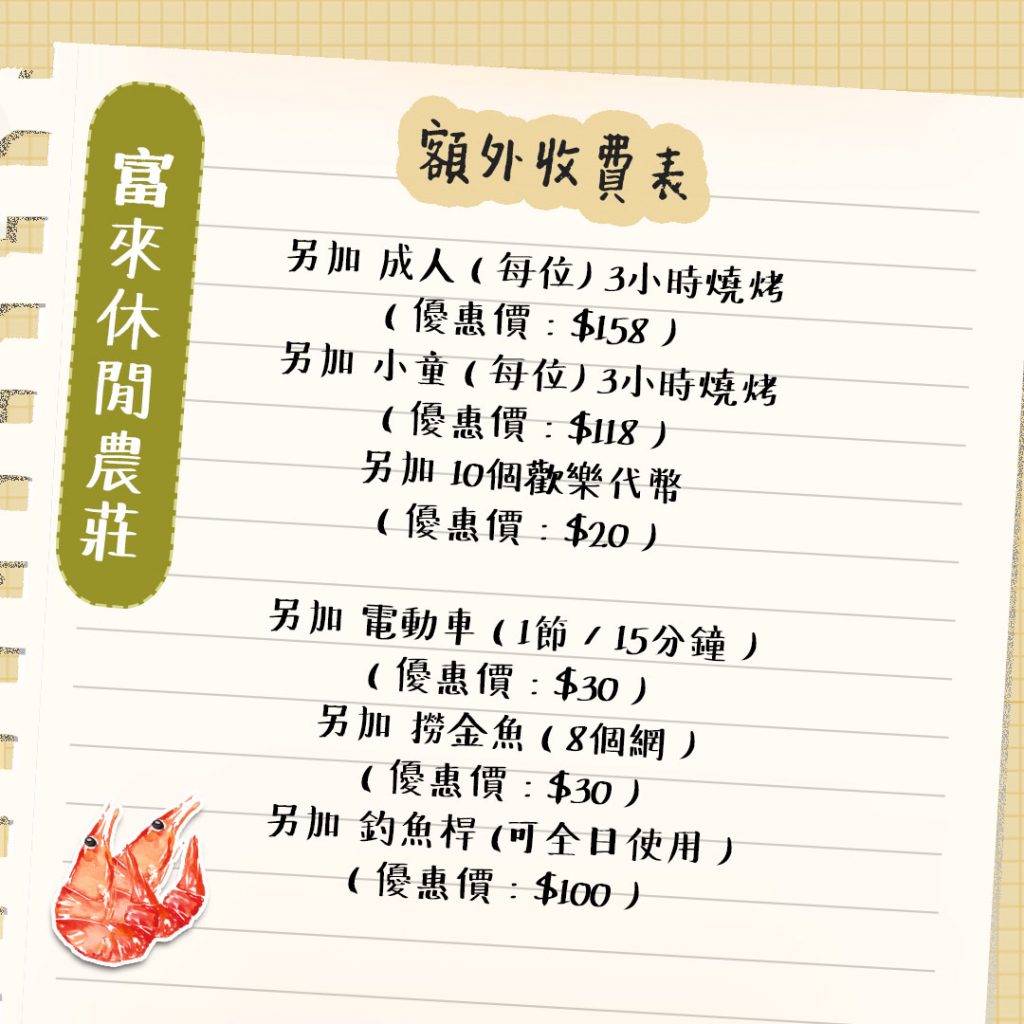 富來休閒農莊
額外收費表
另加 成人 ( 每位 ) 3小時燒烤
( 優惠價 : $158 )
另加 小童 ( 每位 ) 3小時燒烤
( 優惠價 : $118 )
另加 10個歡樂代幣
( 優惠價 : $20 )
另加 電動車 ( 1節 / 15分鐘 )
( 優惠價 : $30 )
另加 撈金魚 ( 8個網 )
( 優惠價 : $30 )
另加 釣魚桿 (可全日使用 )
( 優惠價 : $100 )